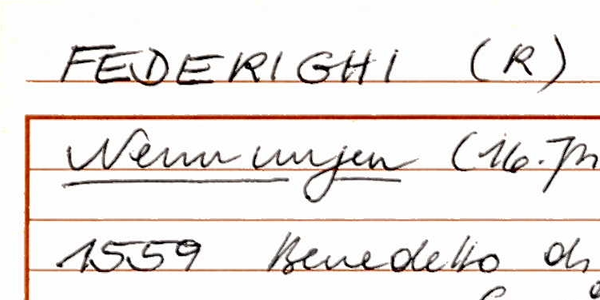 FEDERIGHI (R)
Nennungen (16. Jh
1559 Benedetto di